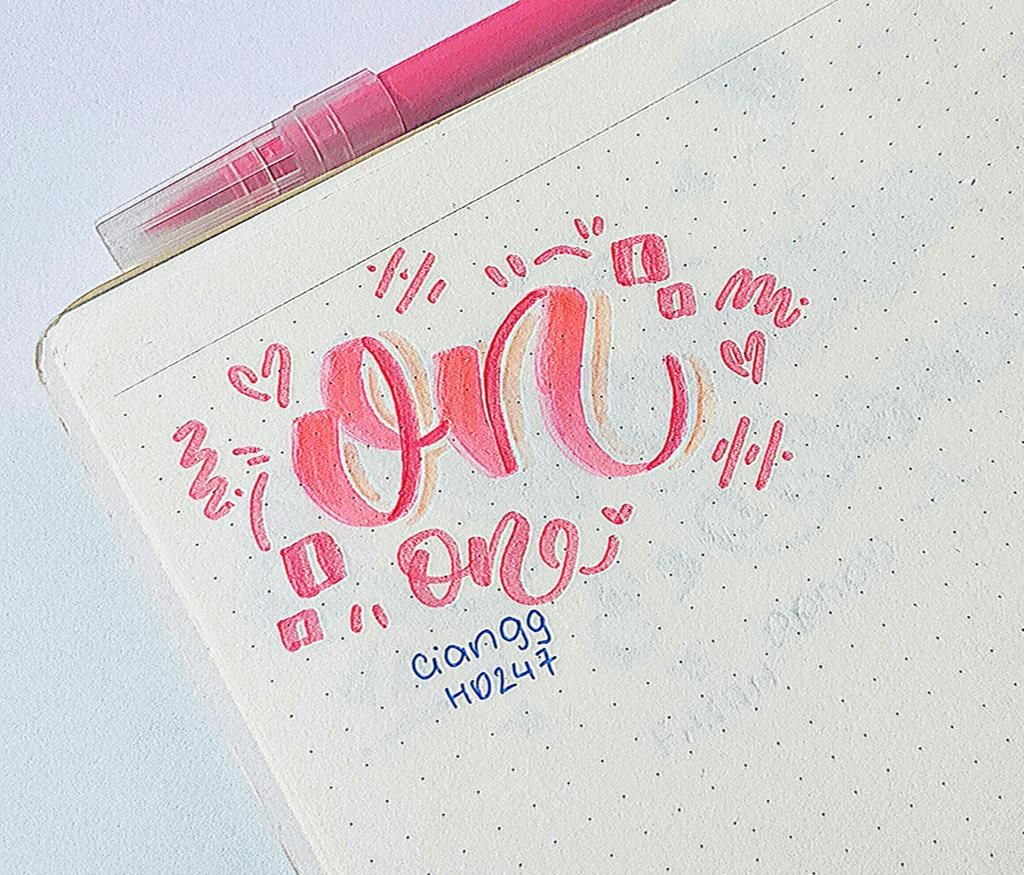 on
on
ciangg
HD247